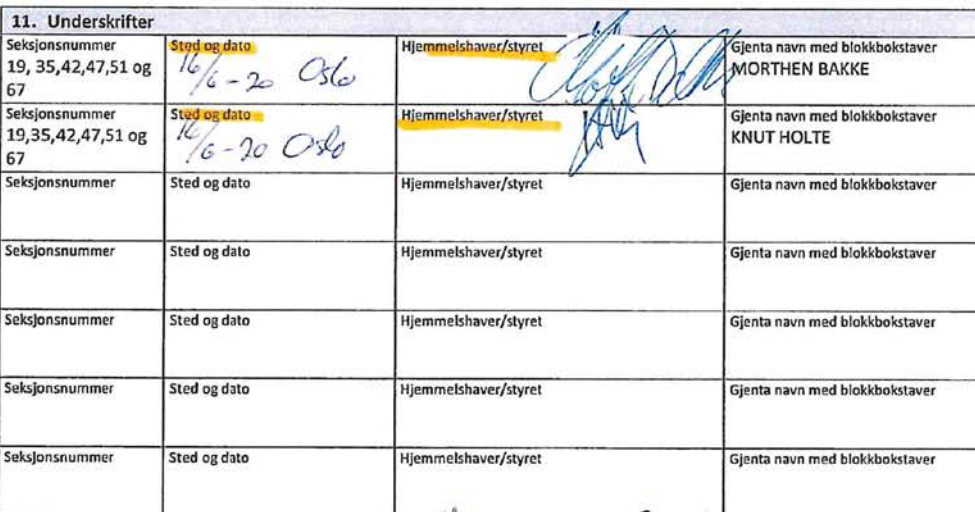 11. Underskrifter
Seksjonsnummer Sted og dato Hjemmelshaver/styret Gjenta navn med blokkbokstaver
19, 35,42,47,51 og 16/6-20 Oslo MORTHEN BAKKE
67
Seksjonsnummer Sted og dato Hjemmelshaver/styret Gjenta navn med blokkbokstaver
19,35,42,47,51 og 16/6-20 Oslo KNUT HOLTE
67
Seksjonsnummer Sted og dato Hjemmelshaver/styret Gjenta navn med blokkbokstaver
Seksjonsnummer Sted og dato Hjemmelshaver/styret Gjenta navn med blokkbokstaver
Seksjonsnummer Sted og dato Hjemmelshaver/styret Gjenta navn med blokkbokstaver
Seksjonsnummer Sted og dato Hjemmelshaver/styret Gjenta navn med blokkbokstaver
Seksjonsnummer Sted og dato Hjemmelshaver/styret Gjenta navn med blokkbokstaver